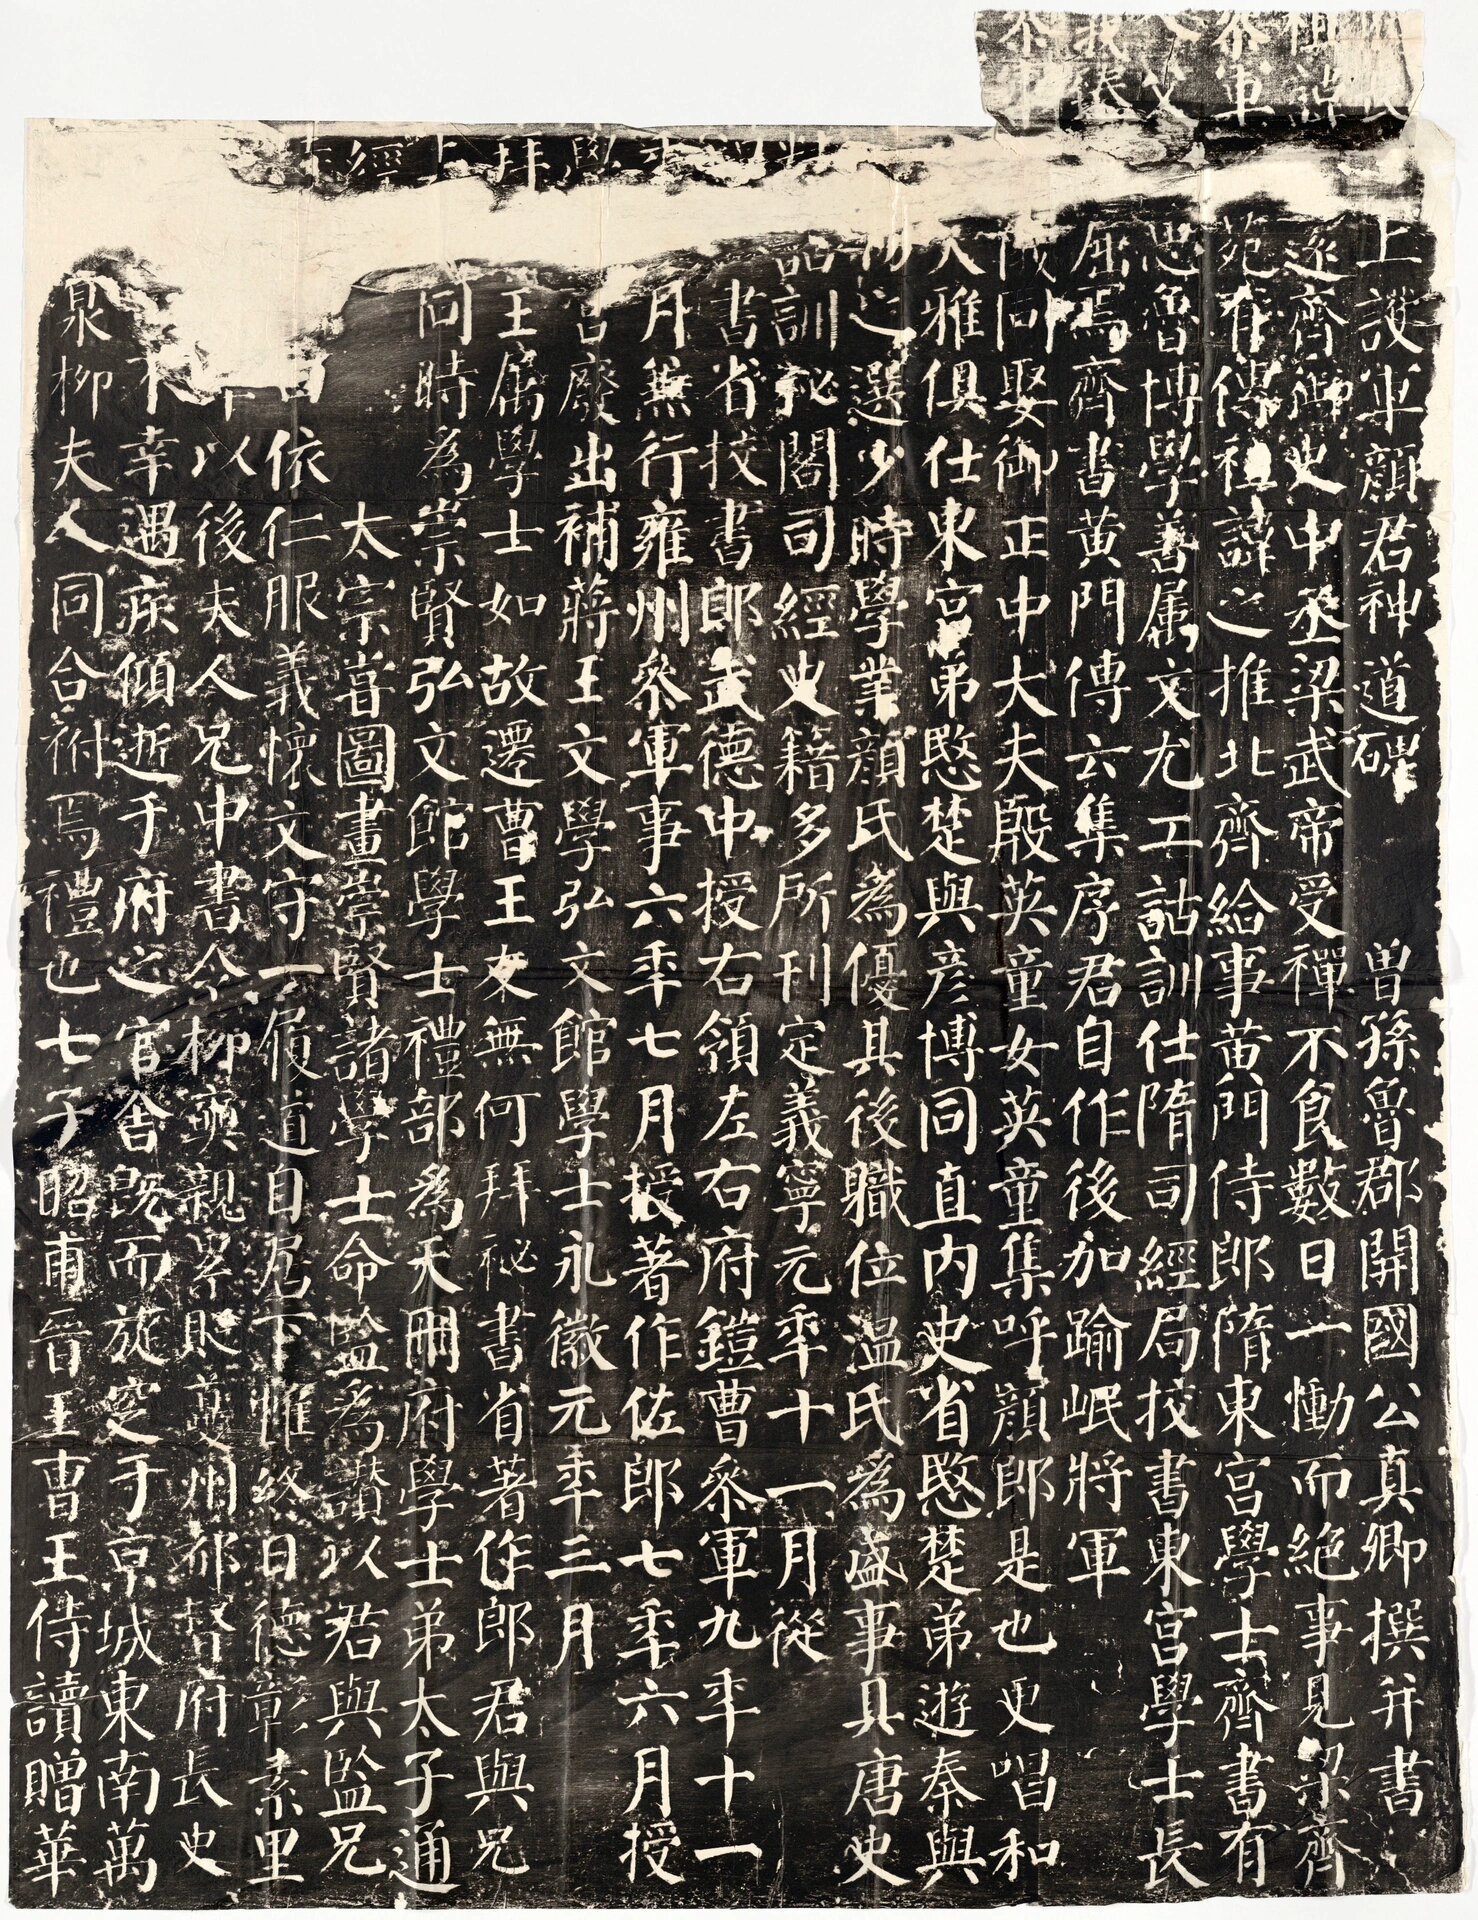 上護軍顏君神道碑 曾孫魯郡開國公真卿撰并書
逐齊御史中丞梁武帝受禪不食數日一慟而絕事見梁齊
苑有傳祖諱之推北齊給事黃門侍郎隋東宮學士齊書有
思魯博學善屬文尤工詁訓仕隋司經局校書東宮學士長
屈焉齊書黃門傳云集序君自作後加踰岷將軍
陵同娶御正中大夫殷英童女英童集呼顏郎是也更唱和
大雅俱仕東宮弟愍楚與彥博同直內史省愍楚弟遊秦與
之選少時學業顏氏為優其後職位溫氏為盛事具唐史
詁訓祕閣司經史籍多所刊定義寧元年十一月從
書省校書郎武德中授右領左右府鎧曹參軍九年十一
月無行雍州參軍事六年七月授著作佐郎七年六月授
宮廢出補蔣王文學弘文館學士永徽元年三月
王屬學士如故遷曹王友無何拜祕書省著作郎君與兄
同時為崇賢弘文館學士禮部為天冊府學士弟太子通
太宗喜圖畫崇賢諸學士命監為讚以君與監兄
依仁服義懷文守一履道自居下惟終日德彰素里
以後夫人兄中書令柳奭親累貶夔州都督府長史
不幸遇疾傾逝于府之官舍既而旋窆于京城東南萬
泉柳夫人同合祔焉禮也七子昭甫晉王曹王侍讀贈華